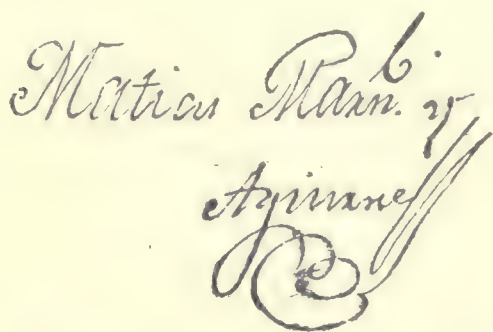 Matias Marn. y
Aguirre